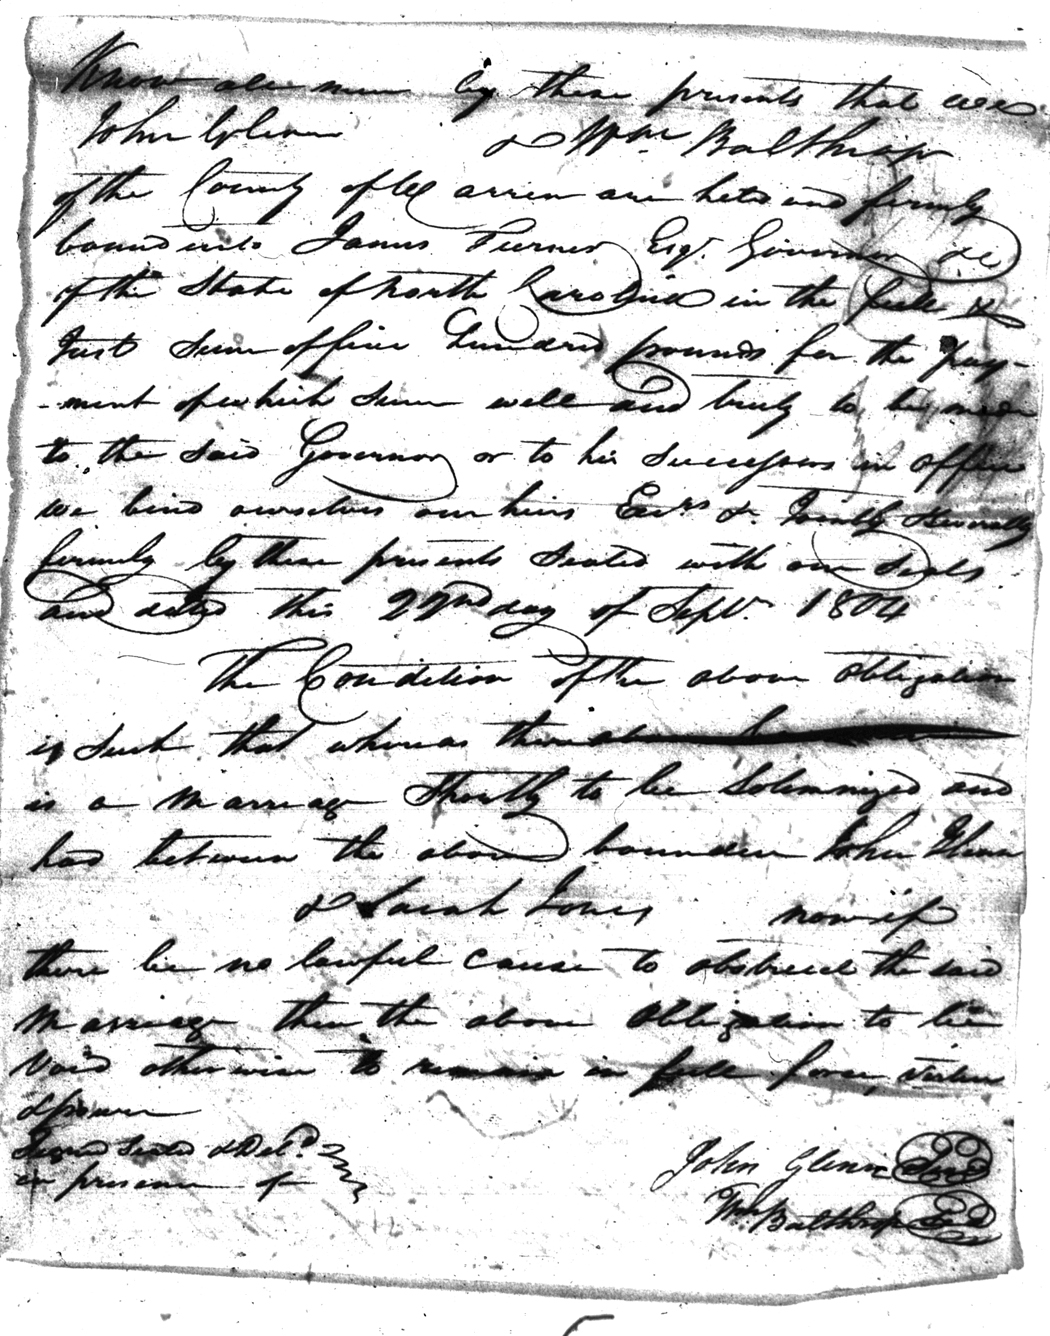 Know all men by these presents that we
John Glenn & Wm. Balthrop
of the County of Warren are held and firmly
bound unto James Turner Esqr. Governor &c
of the State of North Carolina in the full &
Just Sum of five Hundred pounds for the pay-
-ment of which Sum well and truly to be made
to the said Governor or to his Successors in office
we bind ourselves our heirs Exrs &c. Jointly & severally
firmly by these presents Sealed with our Seals
and dated this 22nd day of Sept. 1804
The Condition of the above obligation
is Such that whereas there
is a Marriage Shortly to be Solemnized and
had between the above bounden John Glenn
& Sarah Jones now if
there be no lawful Cause to obstruct the said
Marriage then the above Obligation to be
Void otherwise to remain in full force, virtue
& power
Signed Sealed & Deld.
in presence of
John Glenn Seal
Wm. Balthrop Seal